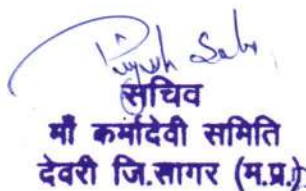 सचिव
माँ कर्मादेवी समिति
देवरी जि.सागर (म.प्र.)